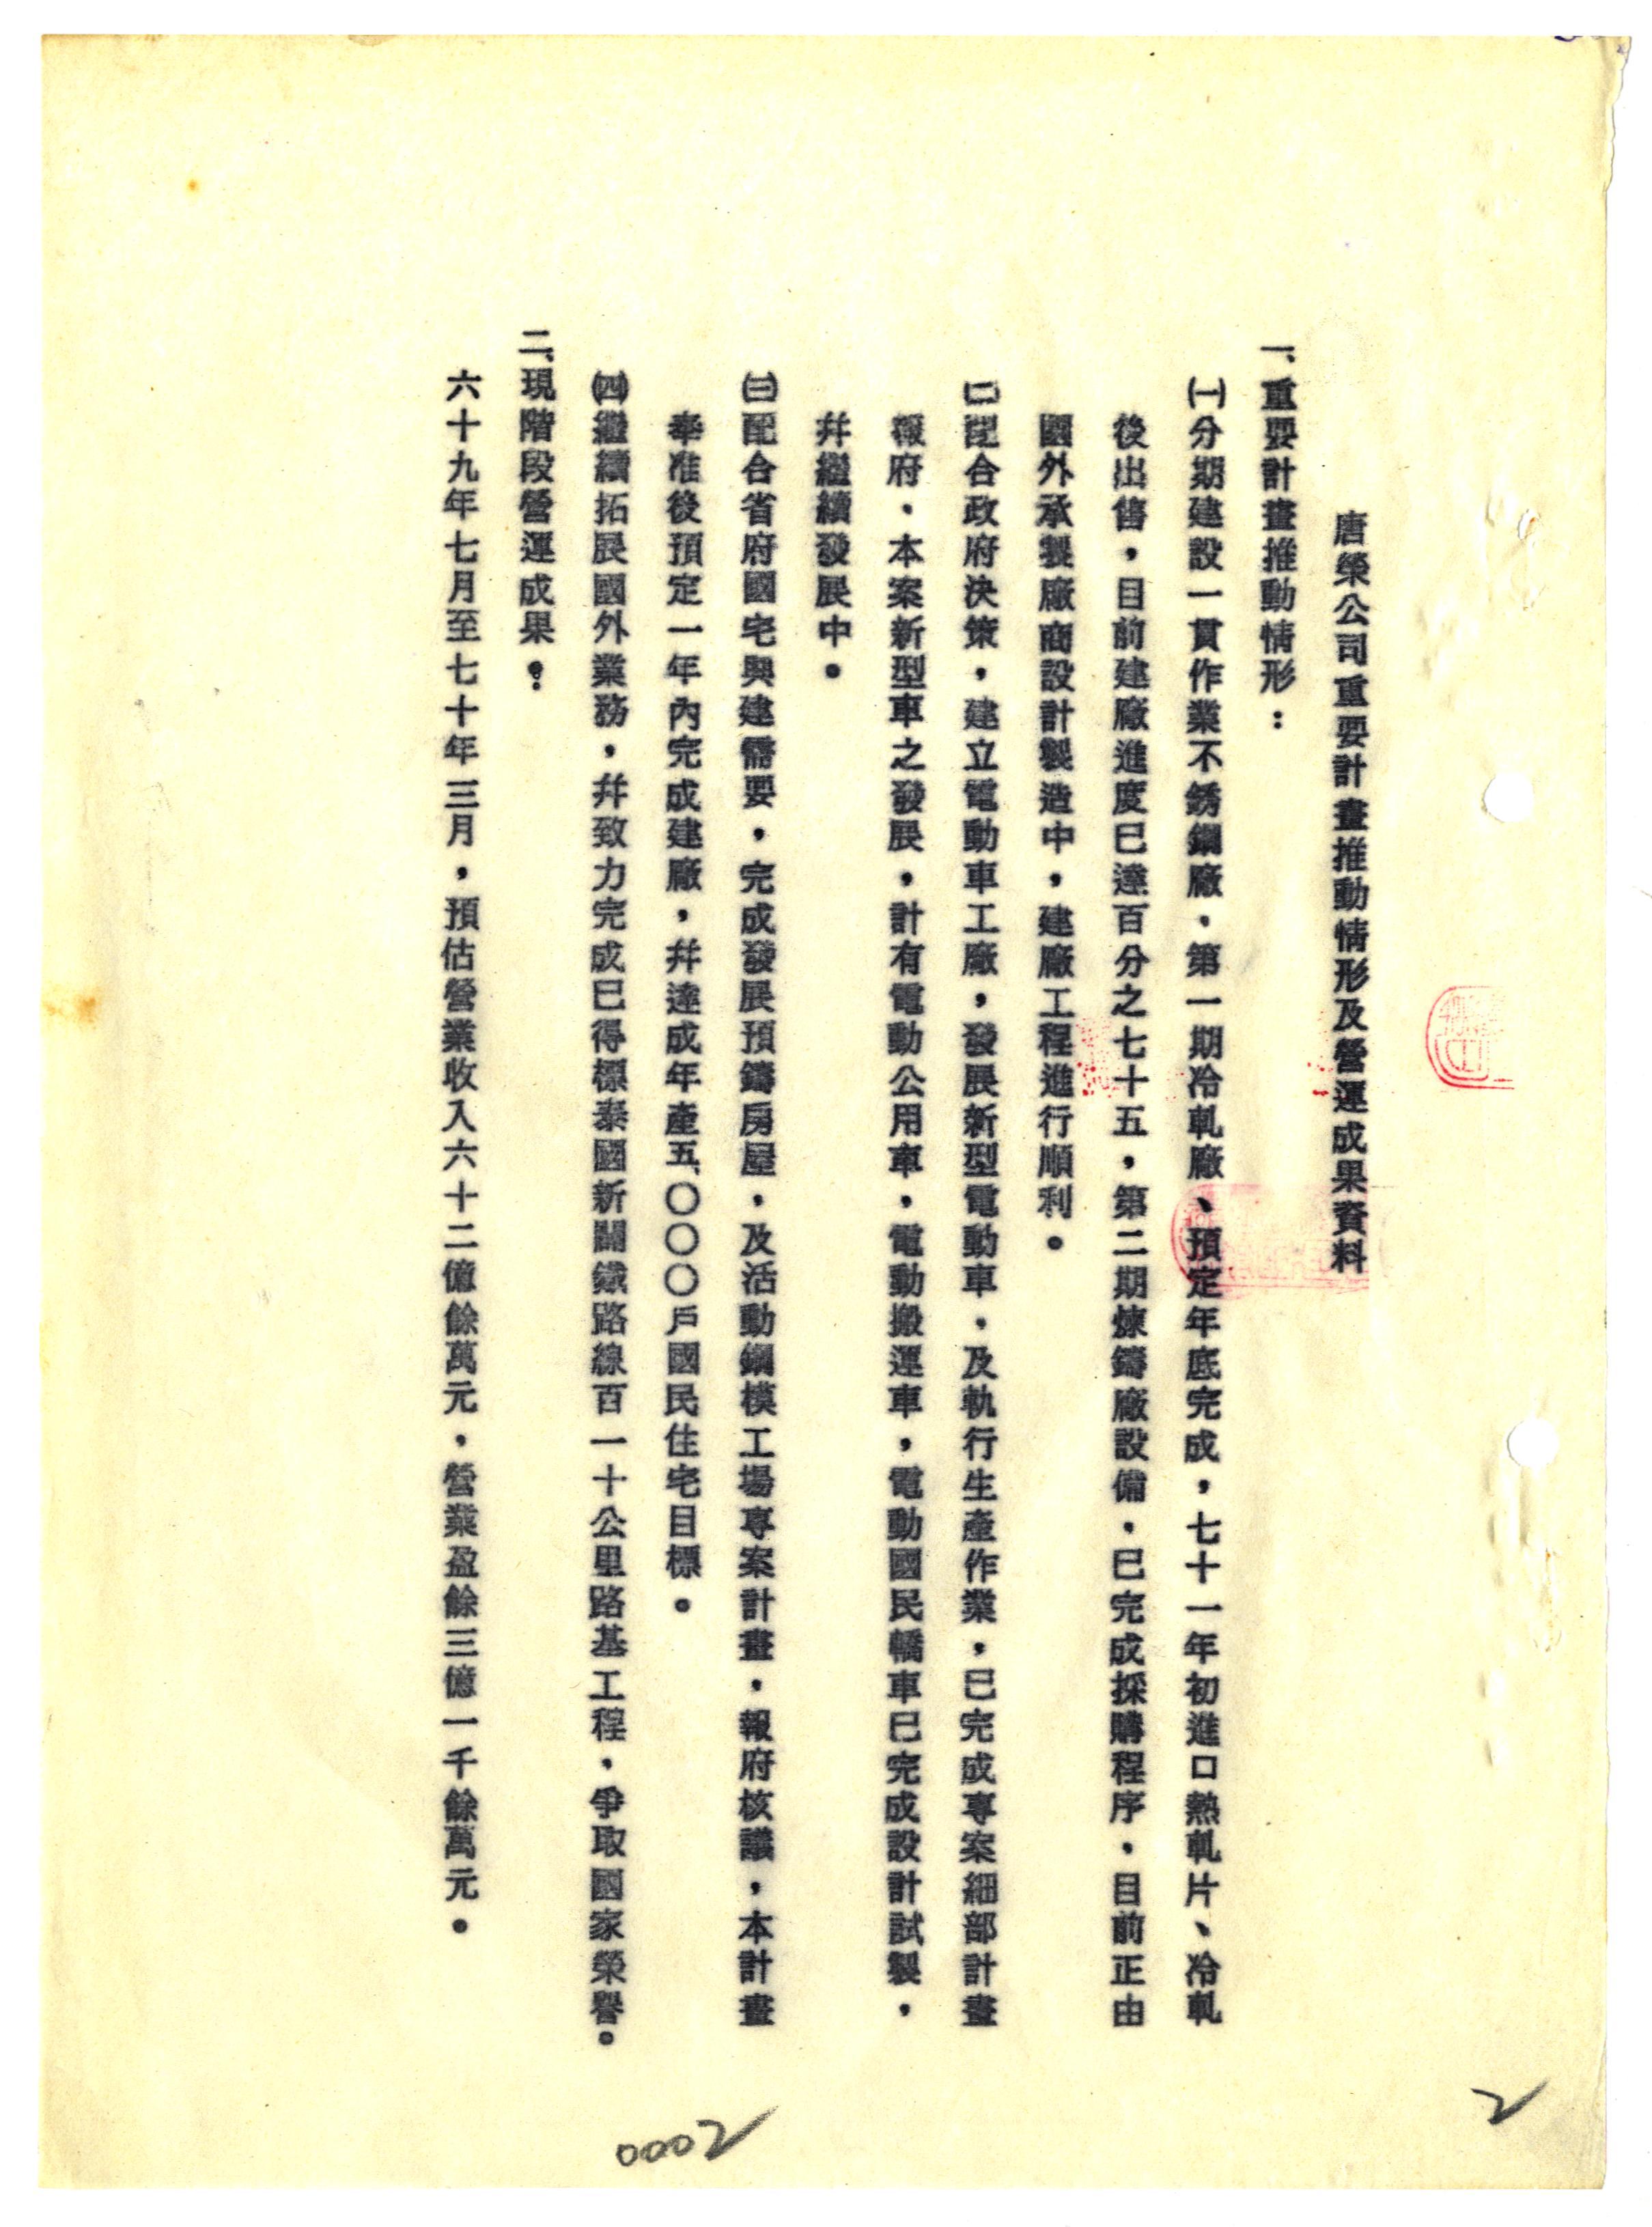 唐榮公司重要計畫推動情形及營運成果資料
一、重要計畫推動情形：
㈠分期建設一貫作業不銹鋼廠，第一期冷軋廠、預定年底完成，七十一年初進口熱軋片、冷軋
後出售，目前建廠進度已達百分之七十五，第二期煉鑄廠設備，已完成採購程序，目前正由
國外承製廠商設計製造中，建廠工程進行順利。
㈡配合政府決策，建立電動車工廠，發展新型電動車，及執行生產作業，已完成專案細部計畫
報府、本案新型車之發展，計有電動公用車，電動搬運車，電動國民轎車已完成設計試製，
并繼續發展中。
㈢配合省府國宅興建需要，完成發展預鑄房屋，及活動鋼模工場專案計畫，報府核議，本計畫
奉准後預定一年內完成建廠，并達成年產五、〇〇〇戶國民住宅目標。
㈣繼續拓展國外業務，并致力完成已得標泰國新闢鐵路線百一十公里路基工程，爭取國家榮譽。
二、現階段營運成果：
六十九年七月至七十年三月，預估營業收入六十二億餘萬元，營業盈餘三億一千餘萬元。
2
0002